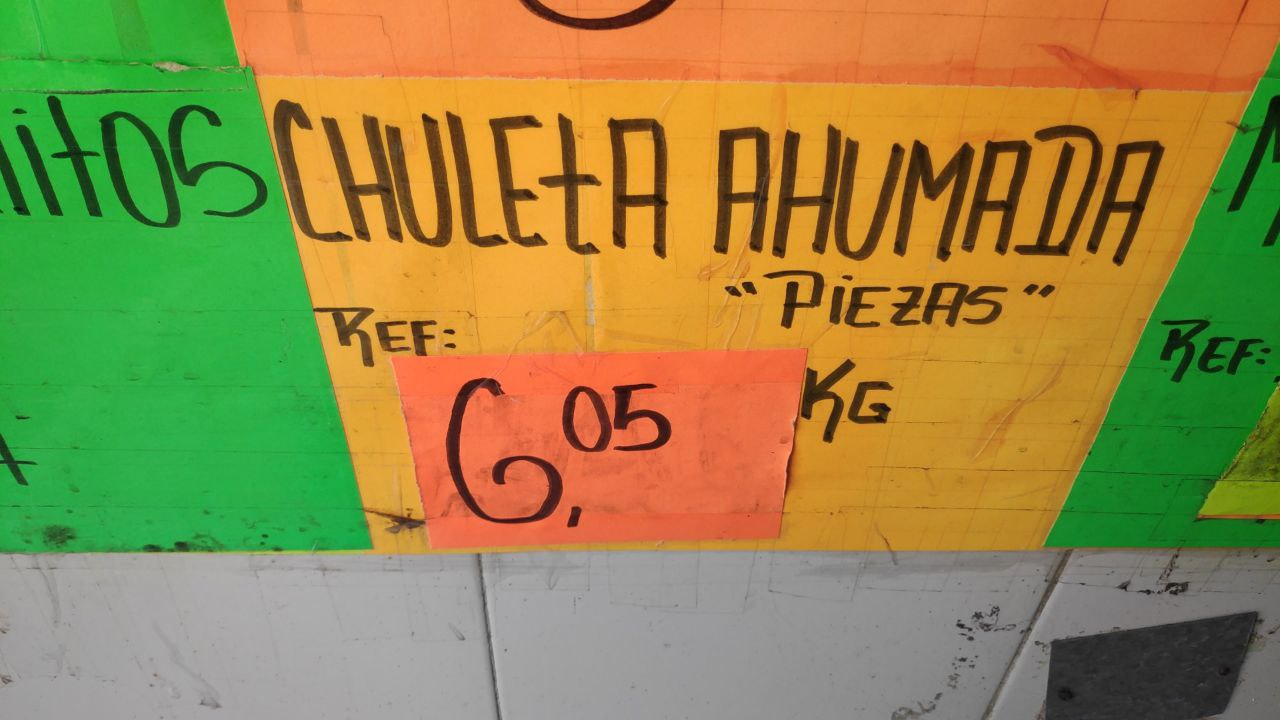 CHULEtA AHUMADA
"PiEZAS"
REF:
6,05
KG
REF: